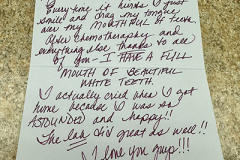 Every time it hurts I just
smile and drag my tongue
over my MOUTHFUL of teeth.
After chemotherapy and
everything else thanks to all
of you - I HAVE A FULL
MOUTH OF BEAUTIFUL
WHITE TEETH.
I actually cried when I got
home because I was so
ASTOUNDED and happy!!
The lab did great as well!!
I love you guys!!!